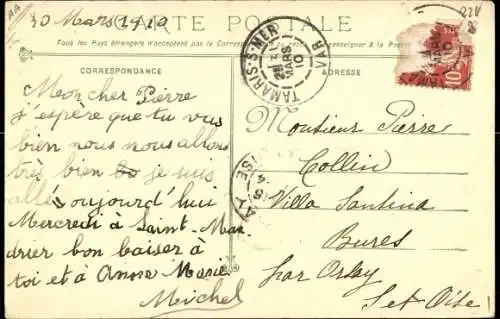 30 Mars 1910
CARTE POSTALE
Tous les Pays étrangers n'acceptent pas la Correspondance renseigner à la Poste
CORRESPONDANCE
ADRESSE
TAMARIS-S-MER
MARS
10
VAR
10
Mon cher Pierre
j'espère que tu vas
bien nous nous allons
très bien je suis
allé aujourd'hui
Mercredi à Saint-Man
drier bon baiser à
toi et à Anne Marie
Michel
Monsieur Pierre
Collin
Villa Santina
Bures
par Orsay
S et Oise